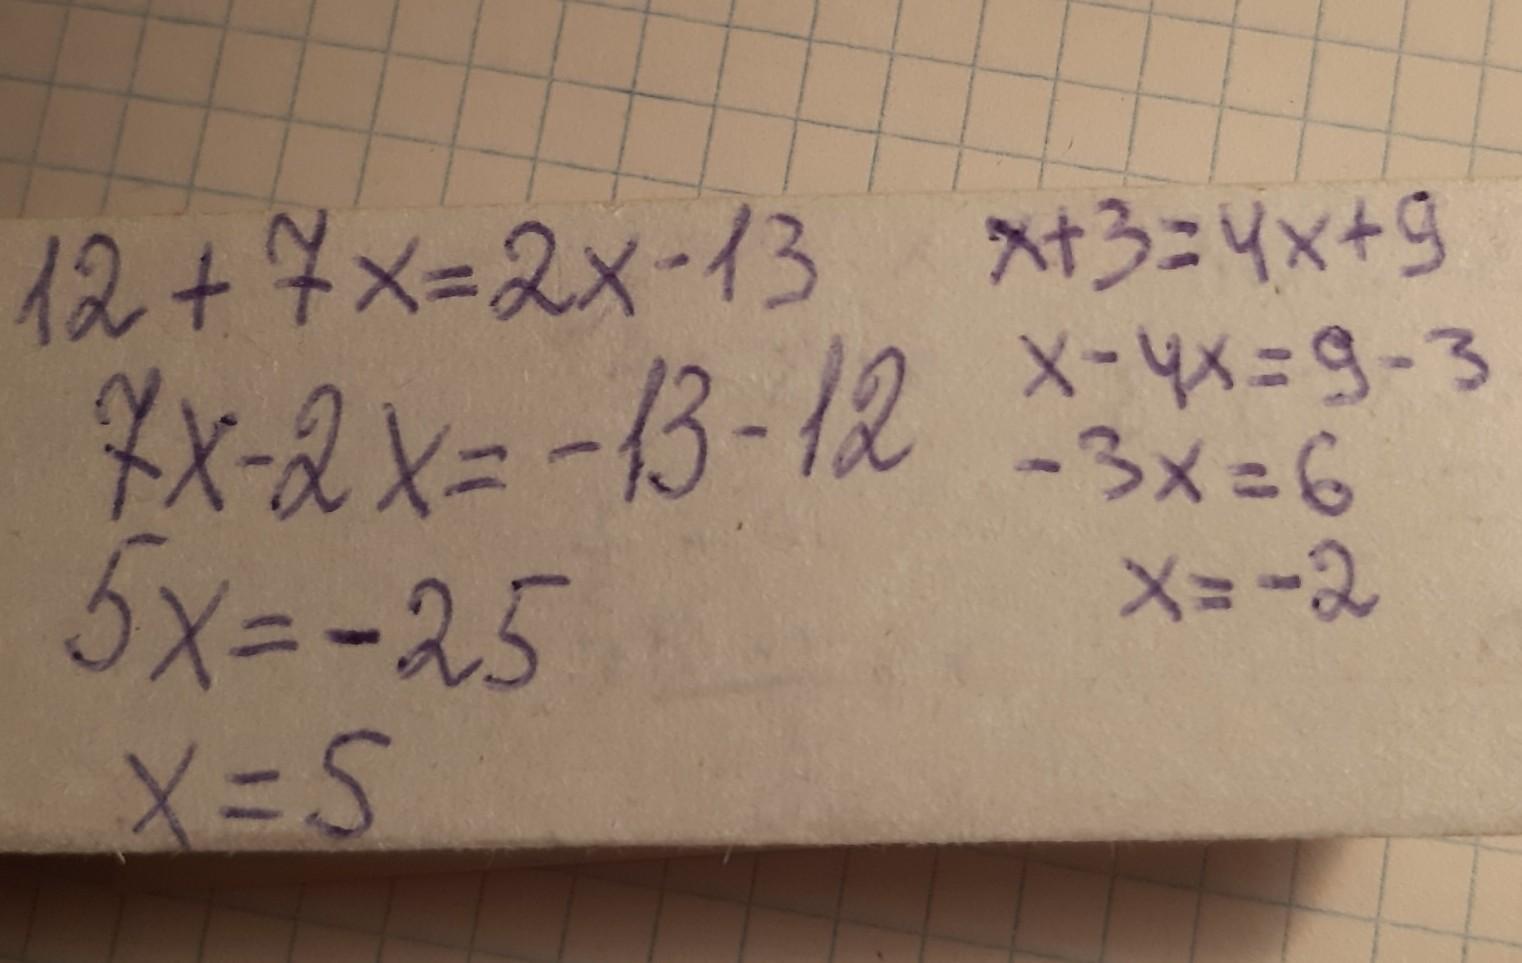 12 + 7x = 2x - 13
7x - 2x = -13 - 12
5x = -25
x = 5
x + 3 = 4x + 9
x - 4x = 9 - 3
-3x = 6
x = -2